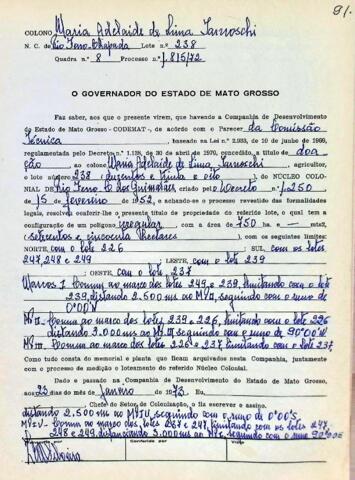 91.
COLONO Maria Adelaide de Lima Iarroschi
N. C. de Rio Ferro-Chapada Lote n.º 238
Quadra n.º 8 Processo n.º 1.815/72
O GOVERNADOR DO ESTADO DE MATO GROSSO
Faz saber, aos que o presente virem, que havendo a Companhia de Desenvolvimento
do Estado de Mato Grosso - CODEMAT -, de acôrdo com o Parecer da Comissão
Técnica, baseada na Lei n.º 2.933, de 10 de junho de 1969,
regulamentada pelo Decreto n.º 1.138, de 30 de abril de 1970, concedido a título de doa
ção ao colono Maria Adelaide de Lima Iarroschi, agricultor,
o lote número 238 (duzentos e trinta e oito), do NÚCLEO COLO-
NIAL DE Rio Ferro C. dos Guimarães, criado pelo Decreto n.º 1.250
de 15 de fevereiro de 1952, e achando-se o processo revestido das formalidades
legais, resolveu conferir-lhe o presente título de propriedade do referido lote, o qual tem a
configuração de um polígono irregular com a área de 750 ha. —
(setecentos e cincoenta Hectares), com os seguintes limites:
NORTE, com o lote 226, SUL, com os lotes
247, 248 e 249, LESTE, com o lote 239
, OESTE, com o lote 237
Marcos I. Comum ao marco dos lotes 249 e 239, limitando com o lote
239, distando 2.500 ms. ao MII, seguindo com o rumo de
0º00'S.
MII. Comum ao marco dos lotes 239 e 226, limitando com o lote 226
distando 3.000 ms. ao MIII seguindo com o rumo de 90º00'
MIII. Comum ao marco dos lotes 226 e 237, limitando com o lote 237,
Como tudo consta do memorial e planta que ficam arquivados nesta Companhia, juntamente
com o processo de medição e loteamento do referido Núcleo Colonial.
Dado e passado na Companhia de Desenvolvimento do Estado de Mato Grosso,
aos 23 dias do mês de Janeiro de 1973. Eu
, Chefe do Setor de Colonização, o fiz escrever e assino.
distando 2.500 ms. ao MIV, seguindo com o rumo de 0º00'S.
MIV. Comum ao marco dos lotes 237 e 247, limitando com os lotes 247,
248 e 249, distanciando 3.000 ms ao MI, seguindo com o rumo 90º00'
Conferido por Visto